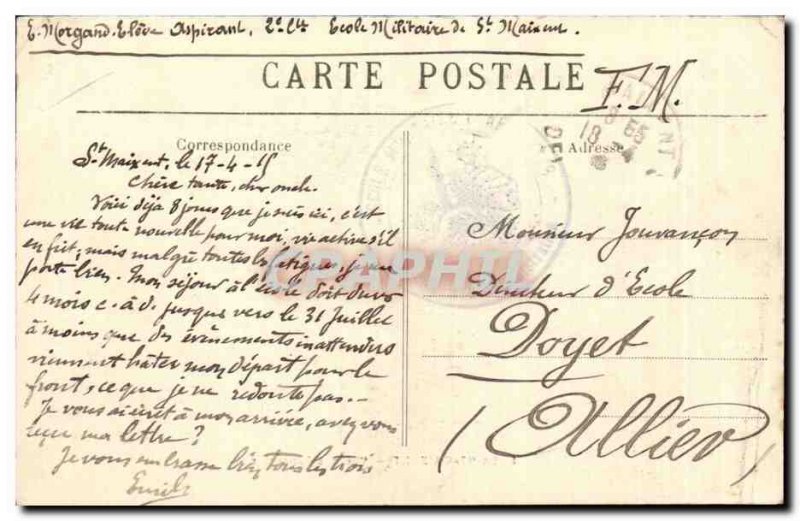 E. Morgand. Elève Aspirant, 2e Cie Ecole Militaire de St Maixent.
CARTE POSTALE
F. M.
Correspondance
Adresse
St Maixent, le 17-4-15
Chère tante, cher oncle.
Voici déjà 8 jours que je suis ici, c'est
une vie toute nouvelle pour moi, vie active s'il
en fut, mais malgré toutes les fatigues, je me
porte bien. Mon séjour à l'école doit durer
4 mois c. à d. jusque vers le 31 Juillet
à moins que des évènements inattendus
viennent hâter mon départ pour le
front, ce que je ne redoute pas..
Je vous ai écrit à mon arrivée, avez vous
reçu ma lettre?
Je vous embrasse bien tous les trois
Emile
Monsieur Jouvançon
Directeur d'Ecole
Doyet
(Allier)
CRAPHTL